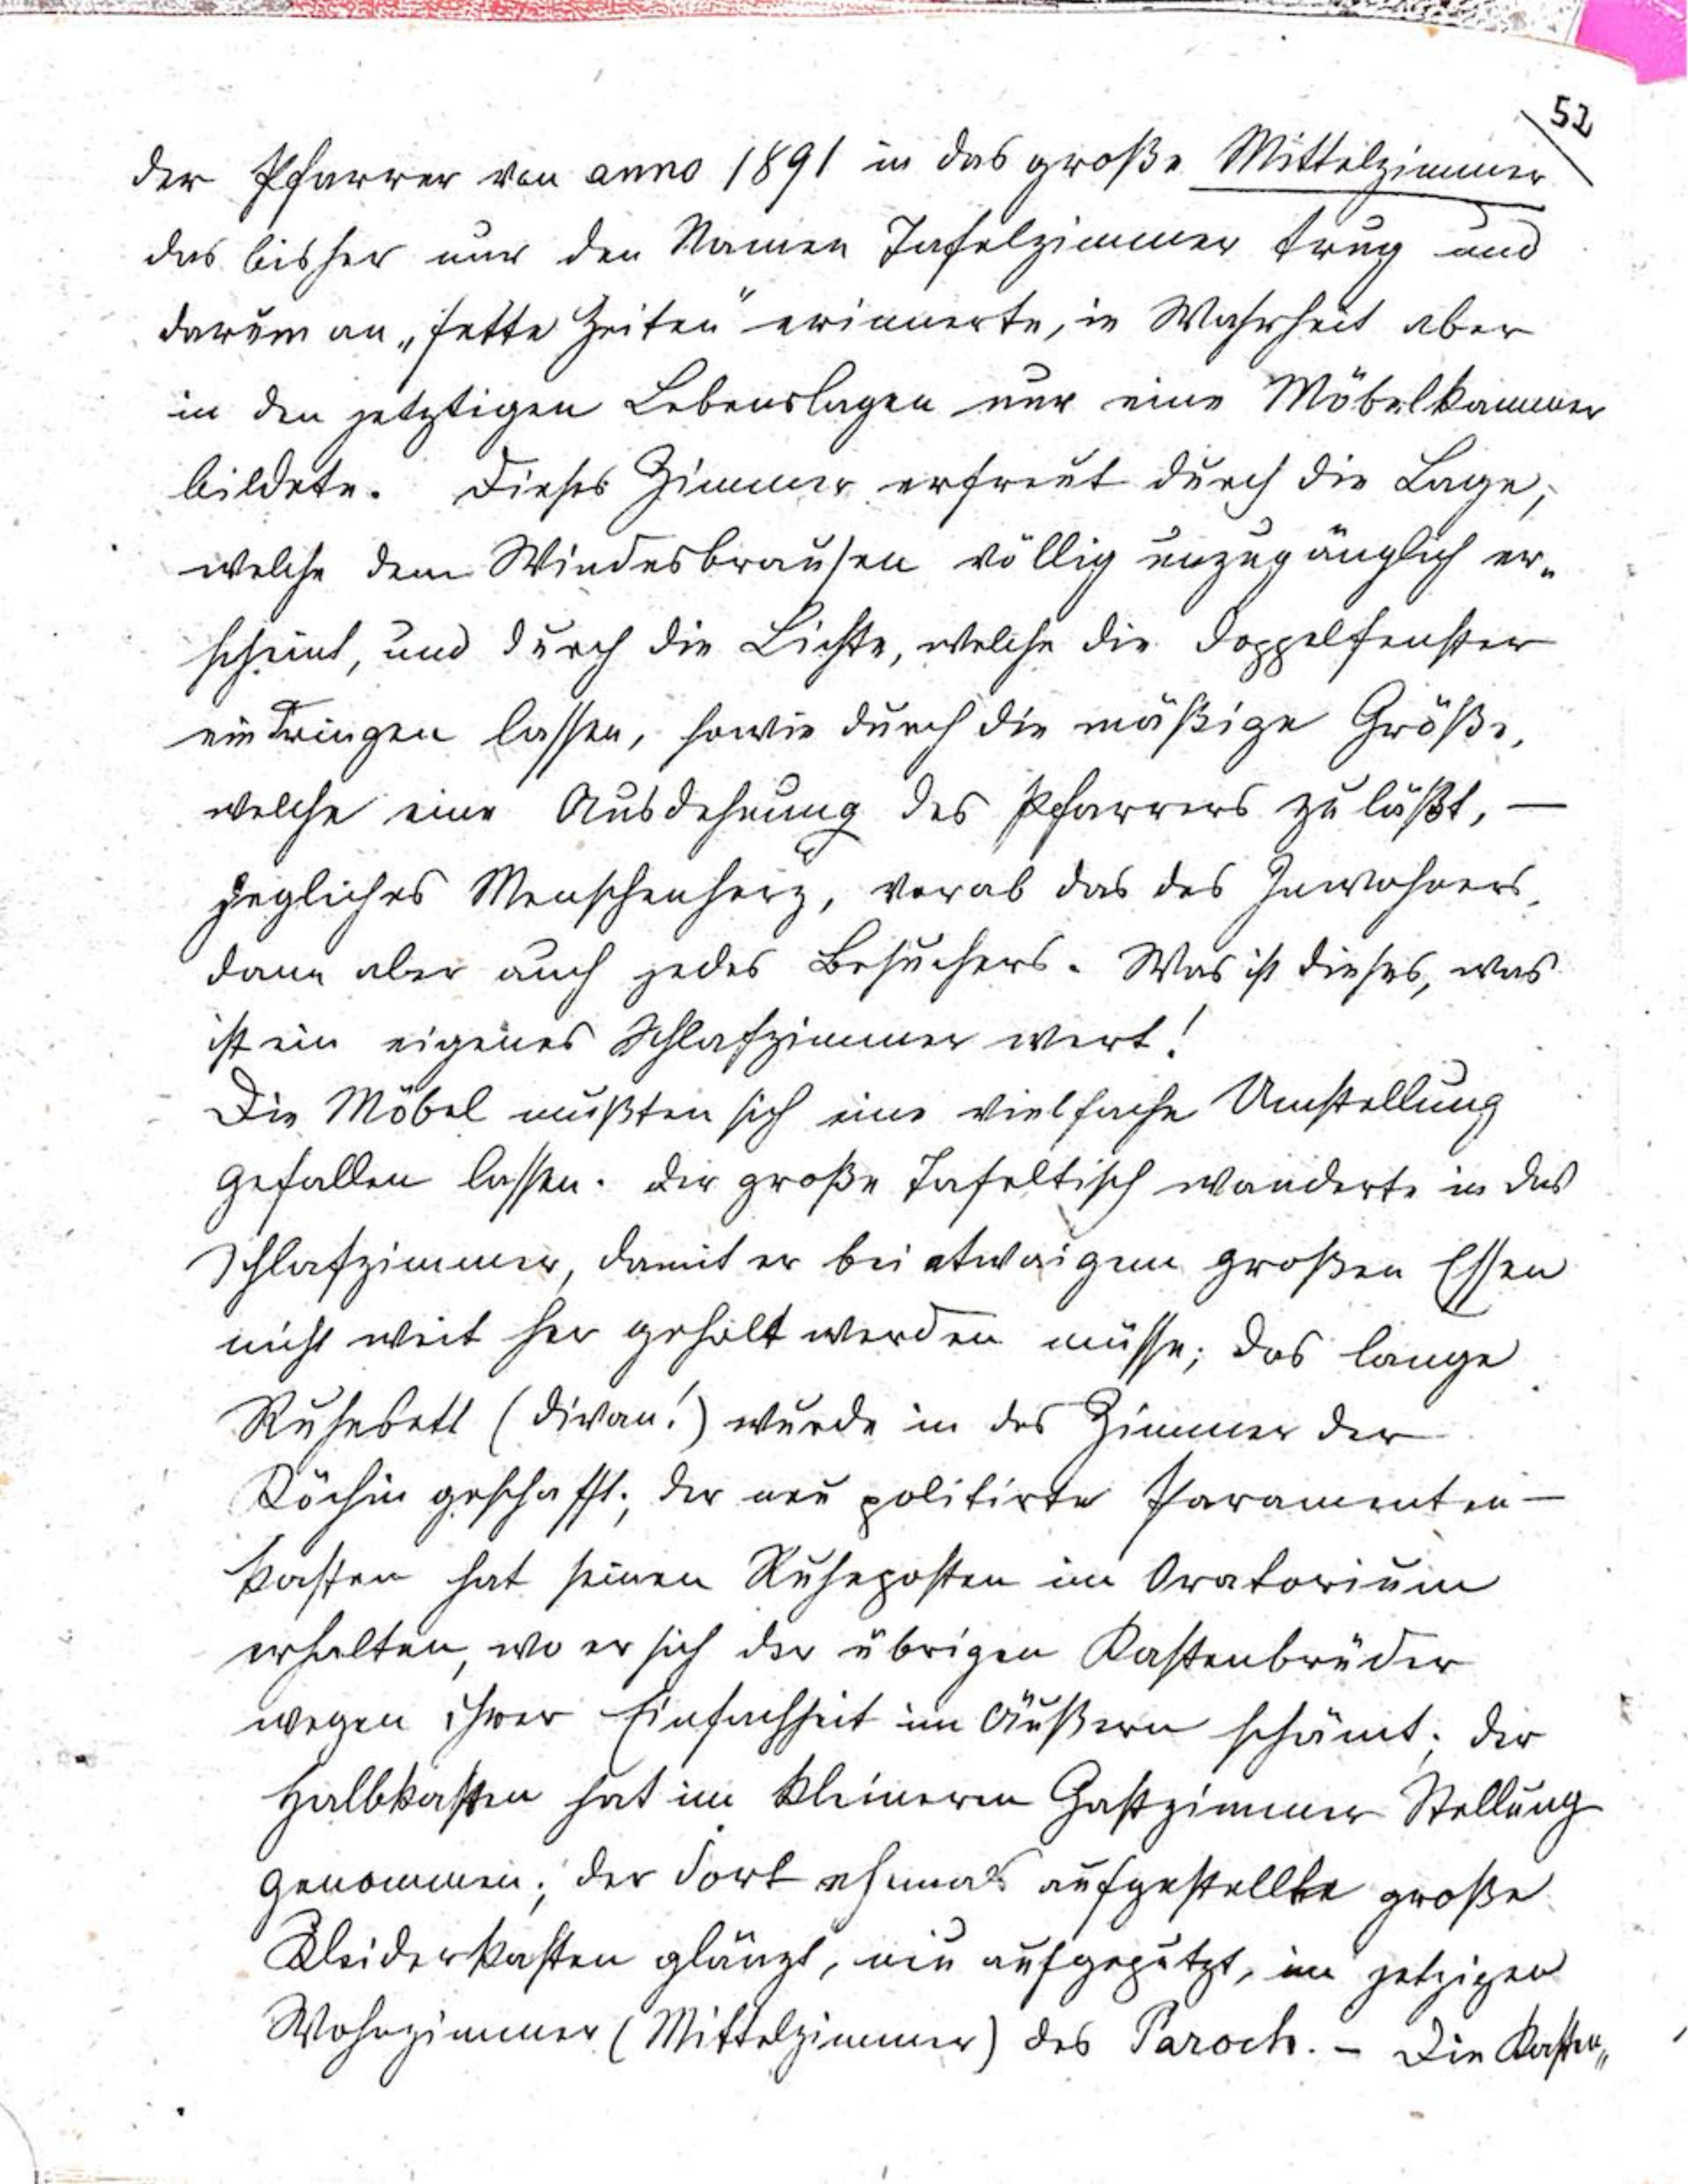 52
der Pfarrer von anno 1891 in das große Mittelzimmer
das bisher nur den Namen Tafelzimmer trug und
darum an „fette Zeiten" erinnerte, in Wahrheit aber
in den jetztigen Lebenslagen nur eine Möbelkammer
bildete. Dieses Zimmer erfreut durch die Lage,
welche dem Windesbrausen völlig unzugänglich er„
scheint, und durch die Lichte, welche die Doppelfenster
eindringen lassen, sowie durch die mäßige Größe,
welche eine Ausdehnung des Pfarrers zuläßt, —
jegliches Menschenherz, vorab das des Inwohners,
dann aber auch jedes Besuchers. Was ist dieses, was
ist ein eigenes Schlafzimmer wert!
Die Möbel mußten sich eine vielfache Umstellung
gefallen lassen. Der große Tafeltisch wanderte in das
Schlafzimmer, damit er bei etwaigem großen Essen
nicht weit her geholt werden müsse; das lange
Ruhebett (Divan!) wurde in das Zimmer der
Köchin geschafft; der neu politirte Paramenten-
kasten hat seinen Ruheposten im Oratorium
erhalten, wo er sich der übrigen Kastenbrüder
wegen ihrer Einfachheit im Äußern schämt; der
Halbkasten hat im kleineren Gastzimmer Stellung
genommen; der dort ehmals aufgestellte große
Kleiderkasten glänzt, neu aufgeputzt, im jetzigen
Wohnzimmer (Mittelzimmer) des Paroch. - Die Kasten„